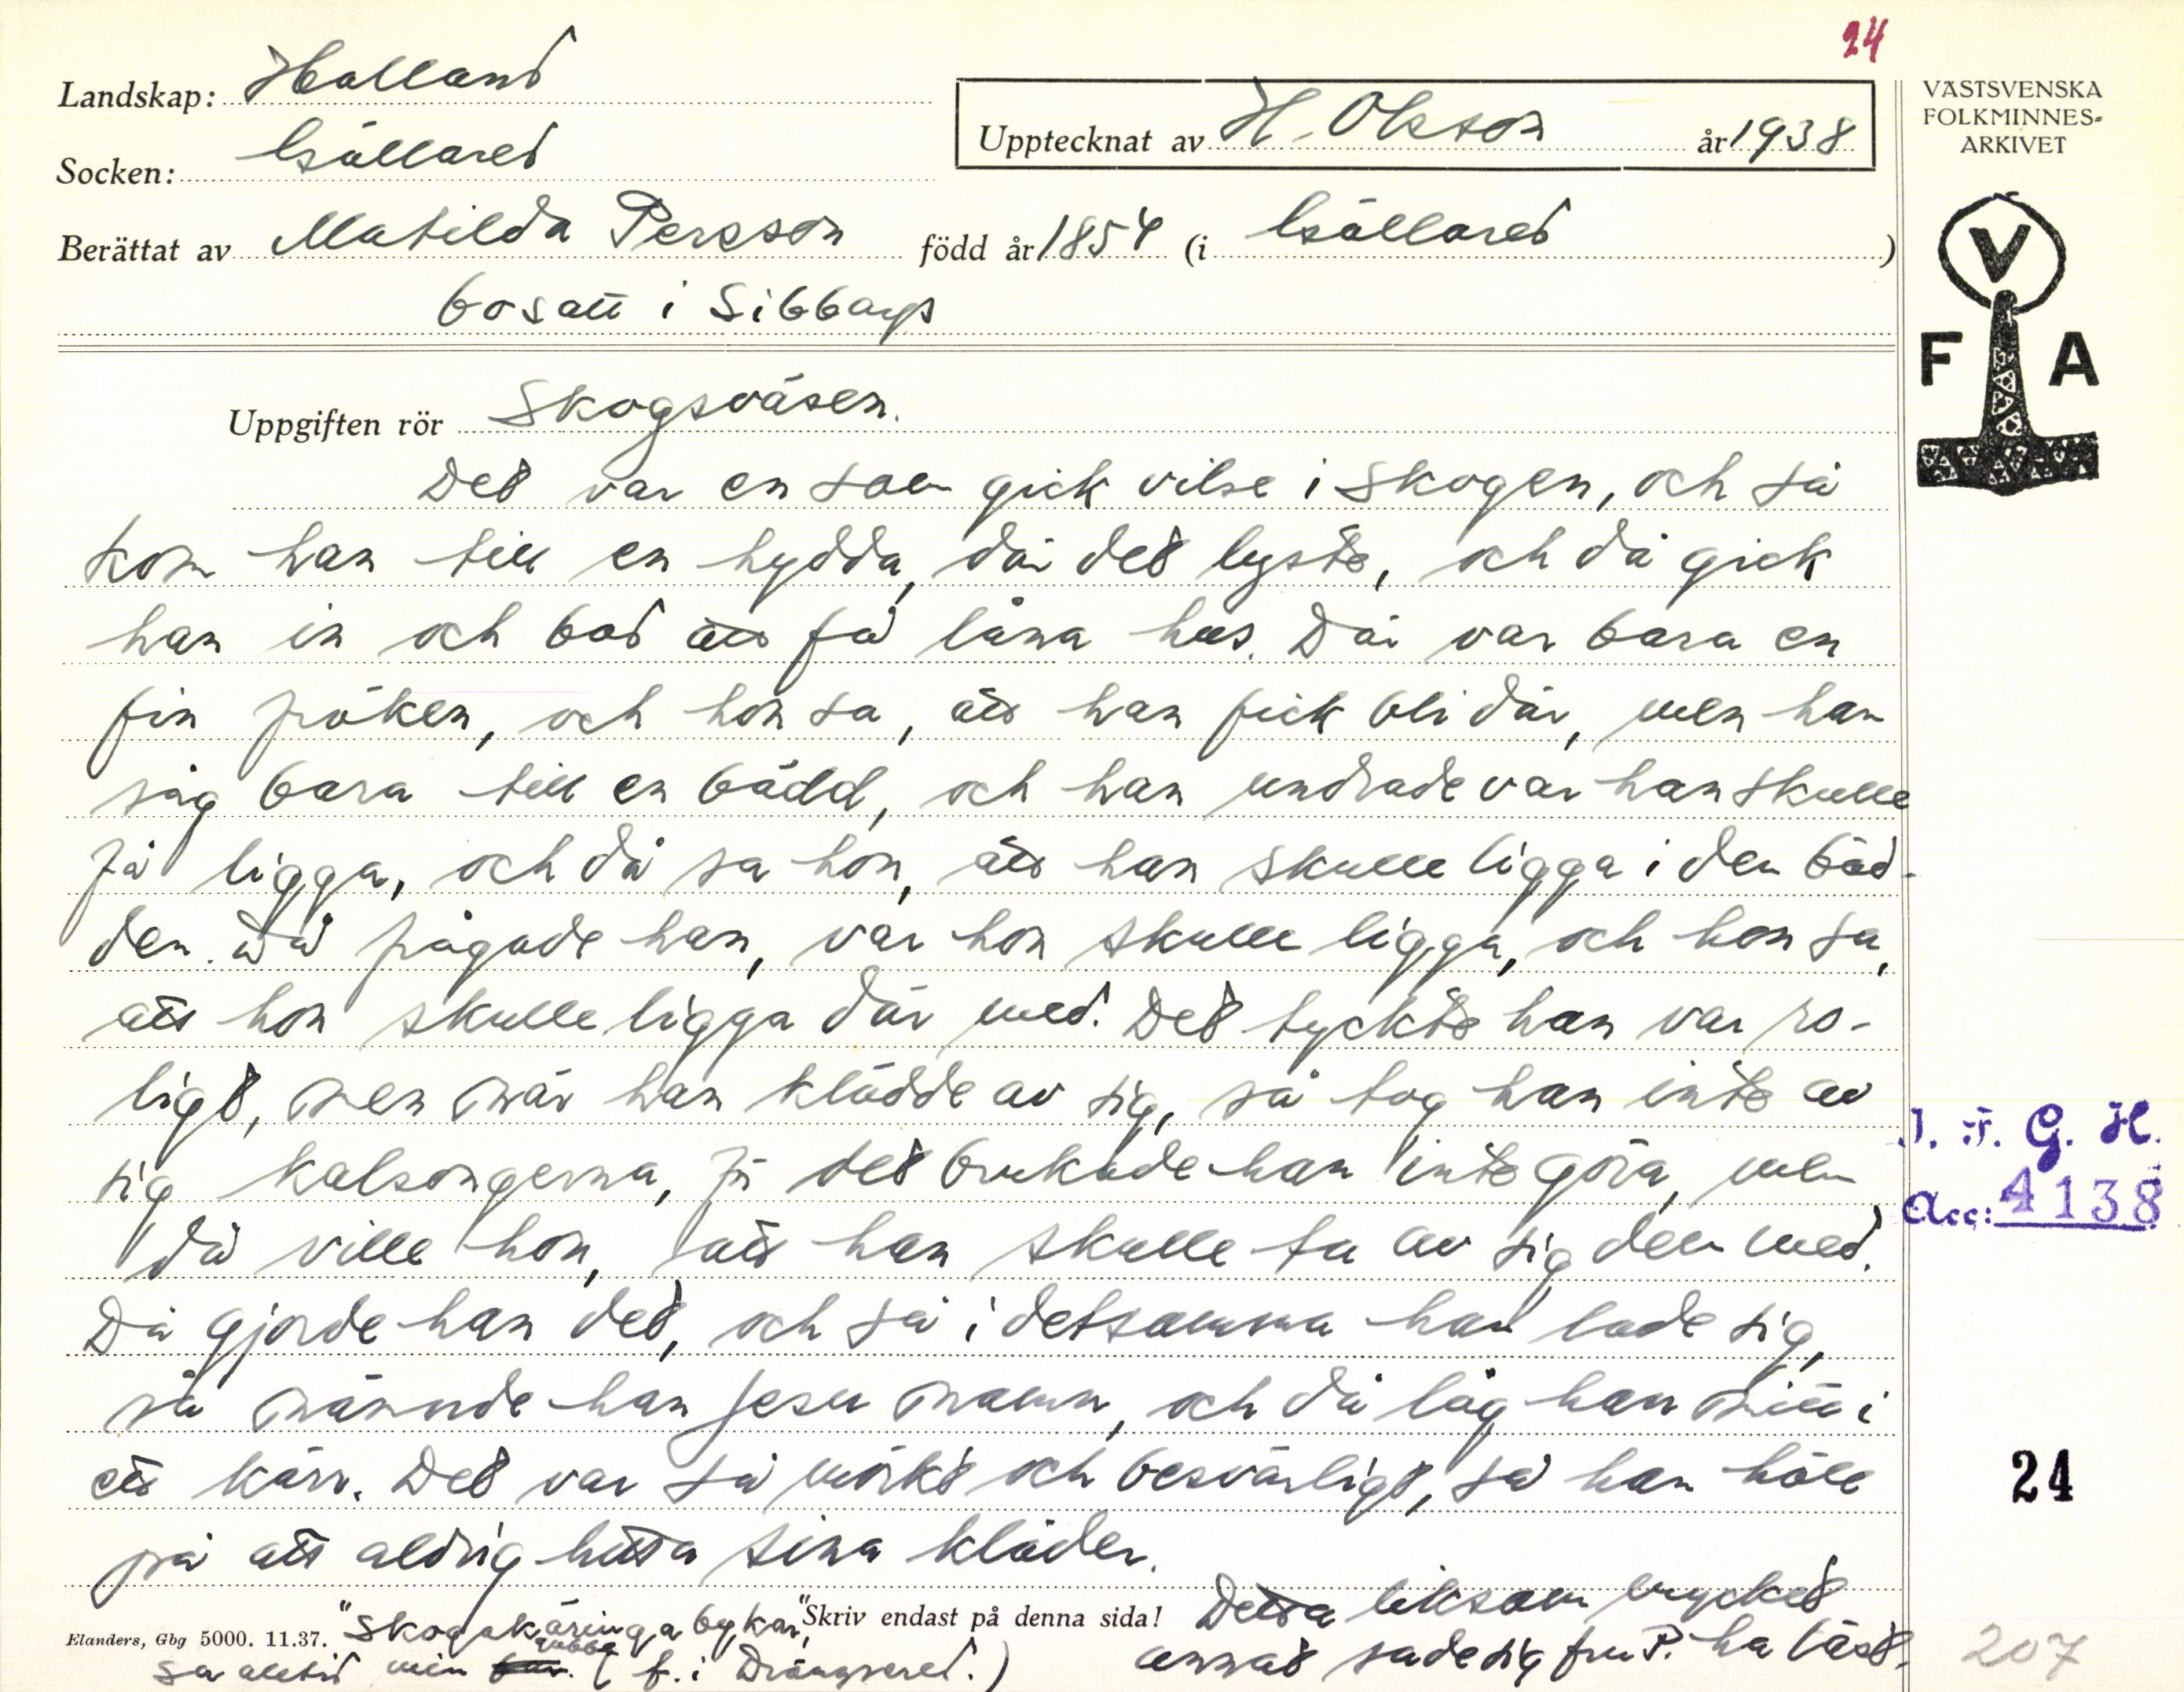 24
Landskap: Halland
Socken: Gällared
Upptecknat av H. Olsson år 1938
VÄSTSVENSKA
FOLKMINNES-
ARKIVET
Berättat av Matilda Persson född år 1854 (i Gällared)
bosatt i Sibbarp
V
F A
Uppgiften rör Skogsväsen.
Det var en som gick vilse i skogen, och så
kom han till en hydda, där det lyste, och då gick
han in och bad att få låna hus. Där var bara en
fin fröken, och hon sa, att han fick bli där, men han
såg bara till en bädd, och han undrade var han skulle
få ligga, och då sa hon, att han skulle ligga i den bäd-
den. Då frågade han, var hon skulle ligga, och hon sa,
att hon skulle ligga där med. Det tyckte han var ro-
ligt, men när han klädde av sig, så tog han inte av
sig kalsongerna, för det brukade han inte göra, men
då ville hon, att han skulle ta av sig dem med.
Då gjorde han det, och så i detsamma han lade sig,
så nämnde han Jesu namn, och då låg han mitt i
ett kärr. Det var så mörkt och besvärligt, så han höll
på att aldrig hitta sina kläder.
I. F. G. H.
Acc: 4138
24
Elanders, Gbg 5000. 11.37.
Skriv endast på denna sida!
"Skogskäringa bykar,"
sa alltid min gubbe (f. i Drängsered.)
Detta liksom mycket
annat sade sig fru P. ha läst.
207